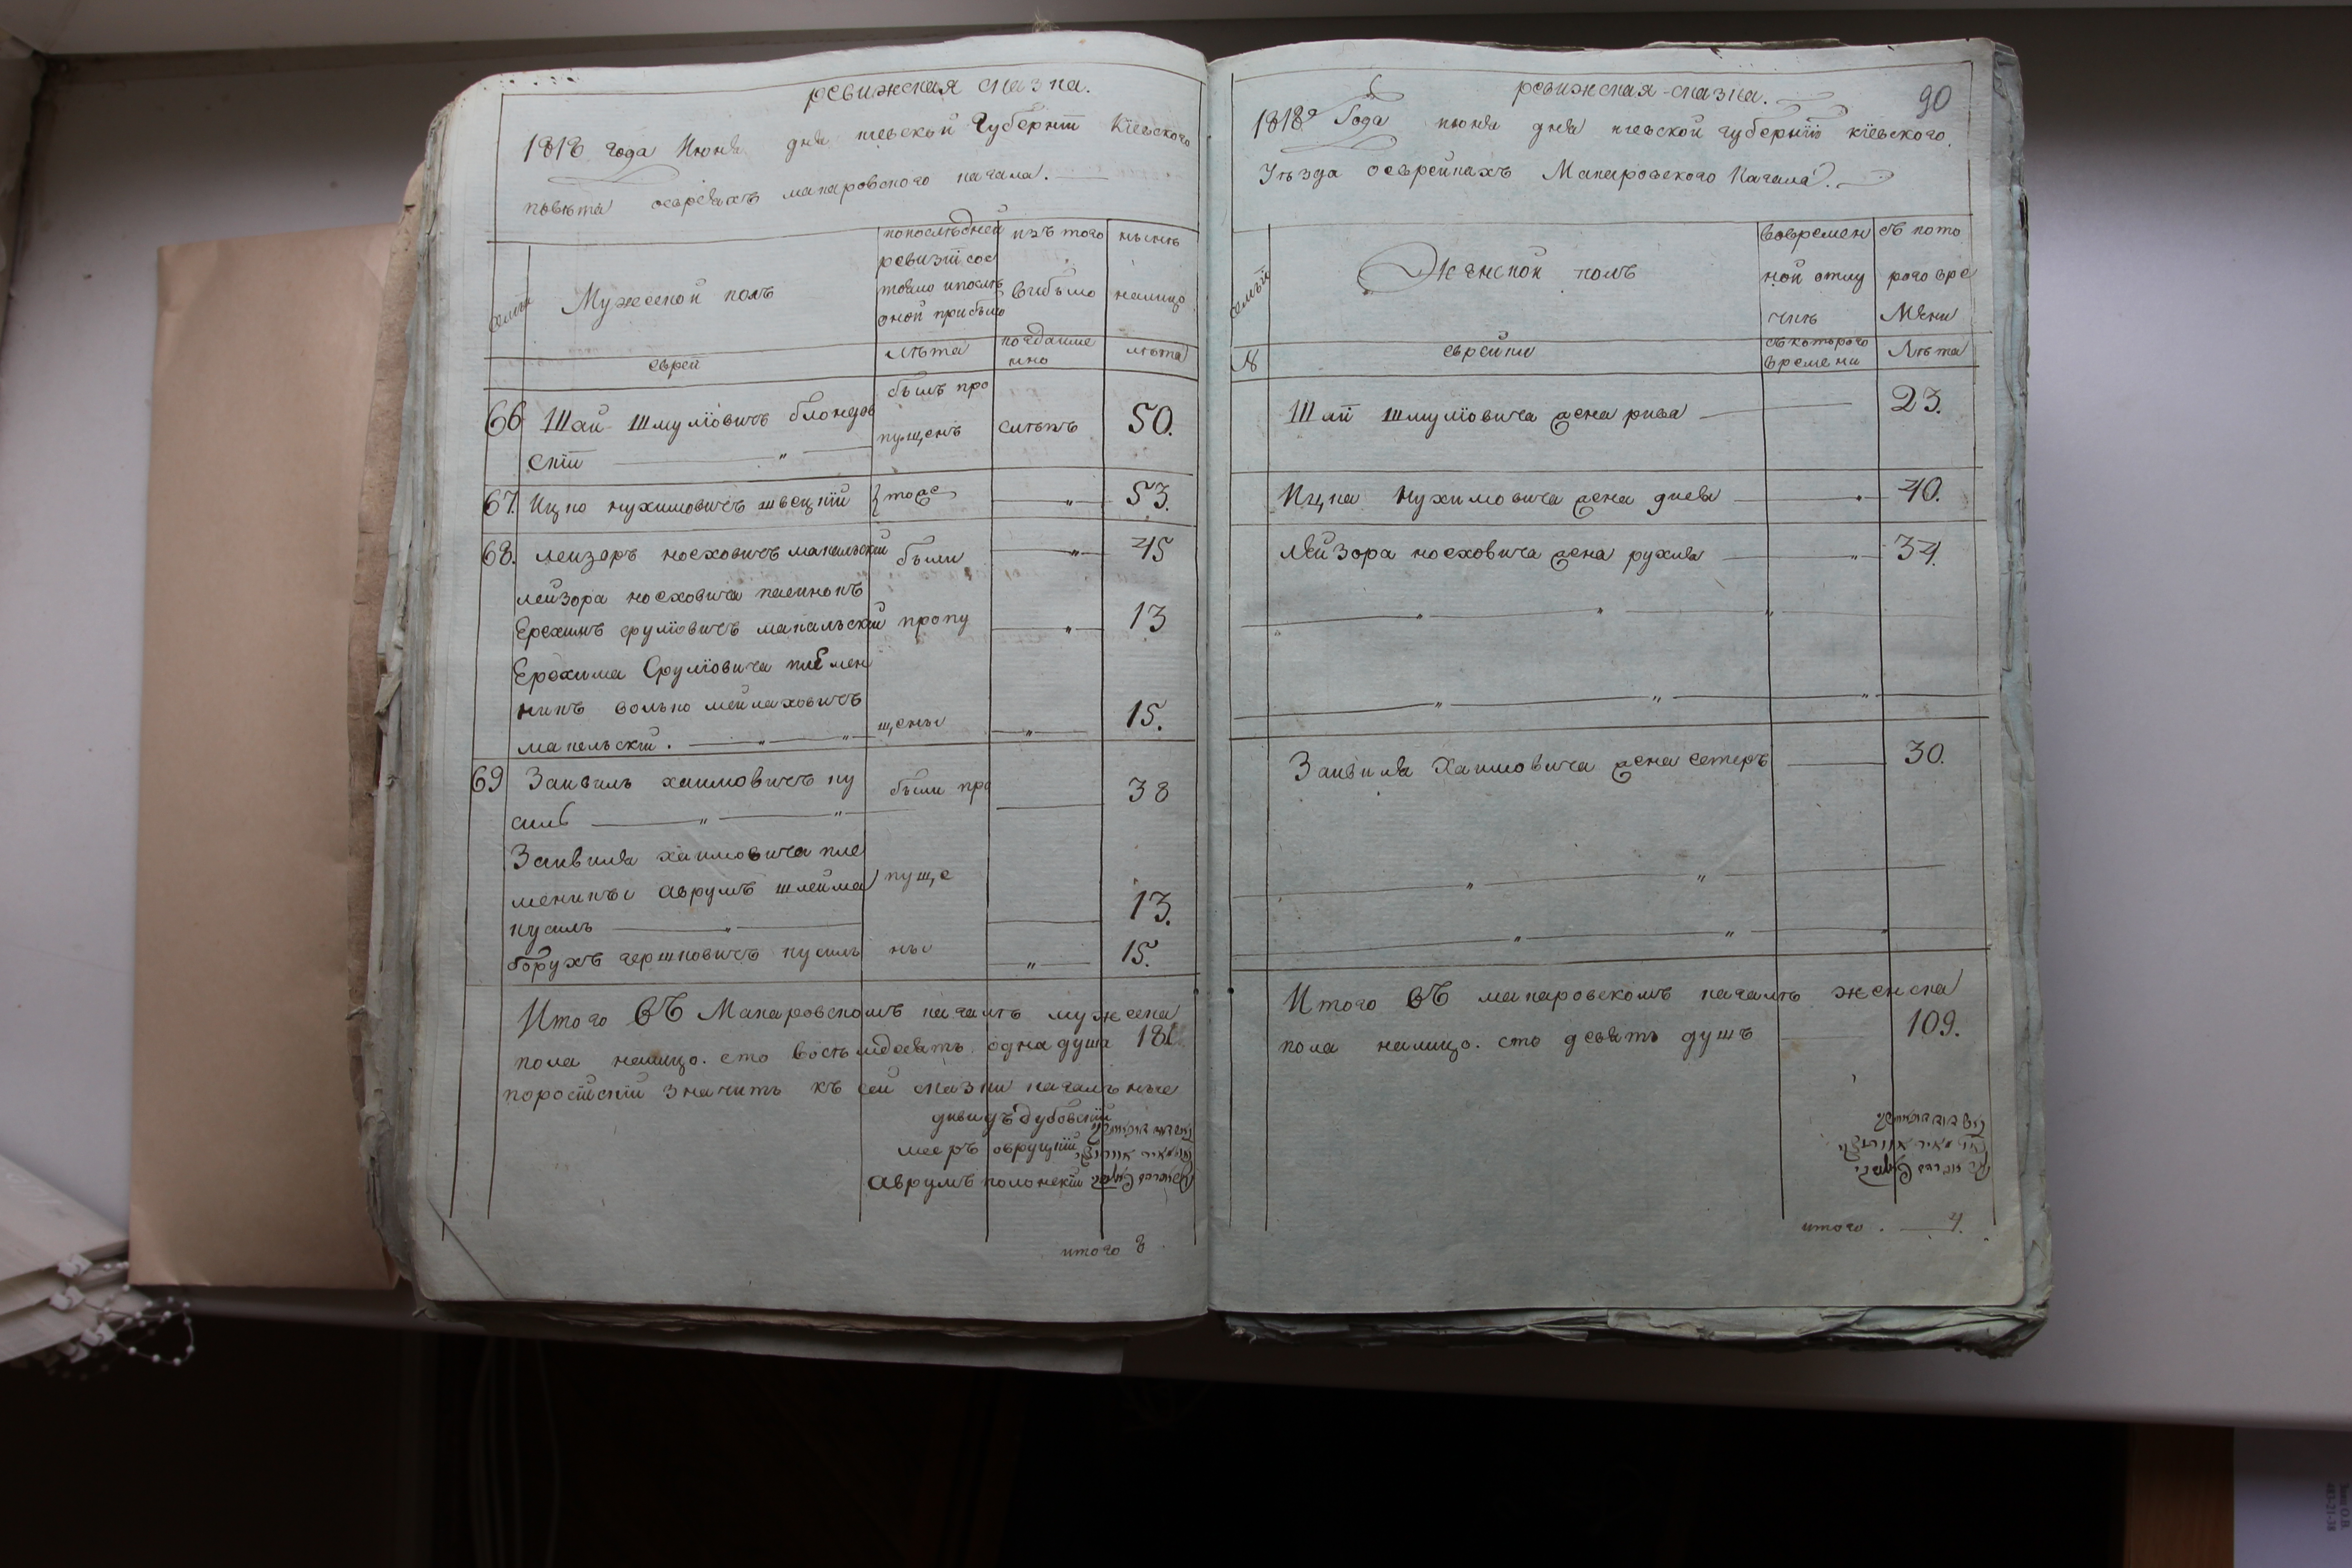 ревижская сказка.
1818 года Июня дня киевской Губернїи Кїевского
повѣта оевреяхъ макаровского кагала.
семьи
Мужеской полъ
попослѣдней
ревизїи сос
тояло ипослѣ
оной прибыло
изъ того
выбыло
нынѣ
налицо
еврей
лѣта
когдаиме
нно
лѣта
66 Шай Шмулїовичъ блондов
скїй
былъ про
пущенъ слѣпъ 50.
67. Ицко нухимовичъ швецкїй тоже 53.
68. лейзоръносховичъ макальский были 45
лейзора носховича пасинокъ
Ерохимъ срулїовичъ макальский пропу 13
Ерохима Срулїовича племен
никъ волько мейлаховичъ
макельскїй. щены 15.
69 Заивилъ хаимовичъ ку были про 38
силь
Заивиля хаимовича пле
менникы аврумъ шлейма пуще 13.
кусиль
борухъ гершковичъ кусиль ны 15.
Итого въ Макаровскомъ кагалѣ мужеска
пола налицо. сто восьмдесятъ одна душа 181
поросїйскїй значитъ къ сей сказки кагалъныe
давидъ дубовскїй
мееръ овруцкїй
аврумъ полонскїй
итого 8.
ревижская-сказка. 90
1818г Года июня дня киевской губернїи кїевского.
Уѣзда оеврейкахъ Макаровского Кагала.
семьи
Женской полъ
вовремен
ной отлу
чкѣ
съ кото
рого вре
мени
№
еврейки
съкоторого
времени
Лѣта
Шаи шмулїовича жена рива 23.
Ицка Нухимовича жена днея 40.
лейзора носховича жена рухля 34.
Заивиля Хаимовича жена естеръ 30.
Итого въ макаровскомъ кагалѣ женска
пола налицо. сто девять душъ 109.
итого. 4.